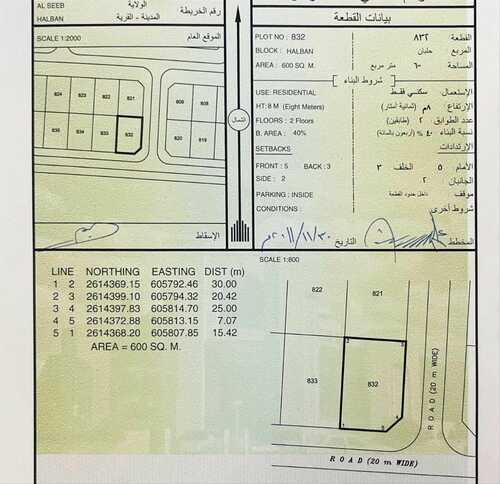 AL SEEB
الولاية
رقم الخريطة
HALBAN
المدينة - القرية
SCALE 1:2000
الموقع العام
824
823
822
821
835
834
833
832
808
809
820
819
الإسقاط
الشمال
بيانات القطعة
PLOT NO : 832
٨٣٢
القطعة
BLOCK : HALBAN
حلبان
المربع
AREA : 600 SQ. M.
متر مربع
المساحة
شروط البناء
USE: RESIDENTIAL
سكني فقط
الإستعمال
HT: 8 M (Eight Meters)
٨م (ثمانية أمتار)
الإرتفاع
FLOORS : 2 Floors
٢ (طابقين)
عدد الطوابق
B. AREA : 40%
٤٠٪ (أربعون بالمائة)
نسبة البناء
SETBACKS
الإرتدادات
FRONT : 5 BACK : 3
٣ الخلف ٥ الأمام
SIDE : 2
٢
الجانبان
PARKING : INSIDE
داخل حدود القطعة
موقف
CONDITIONS :
شروط أخرى
التاريخ
٢٠١١/١١/٣٠م
المخطط
SCALE 1:800
LINE NORTHING EASTING DIST (m)
1 2 2614369.15 605792.46 30.00
2 3 2614399.10 605794.32 20.42
3 4 2614397.83 605814.70 25.00
4 5 2614372.88 605813.15 7.07
5 1 2614368.20 605807.85 15.42
AREA = 600 SQ. M.
822
821
2
3
833
832
1
5
4
ROAD (20 m WIDE)
ROAD (20 m WIDE)